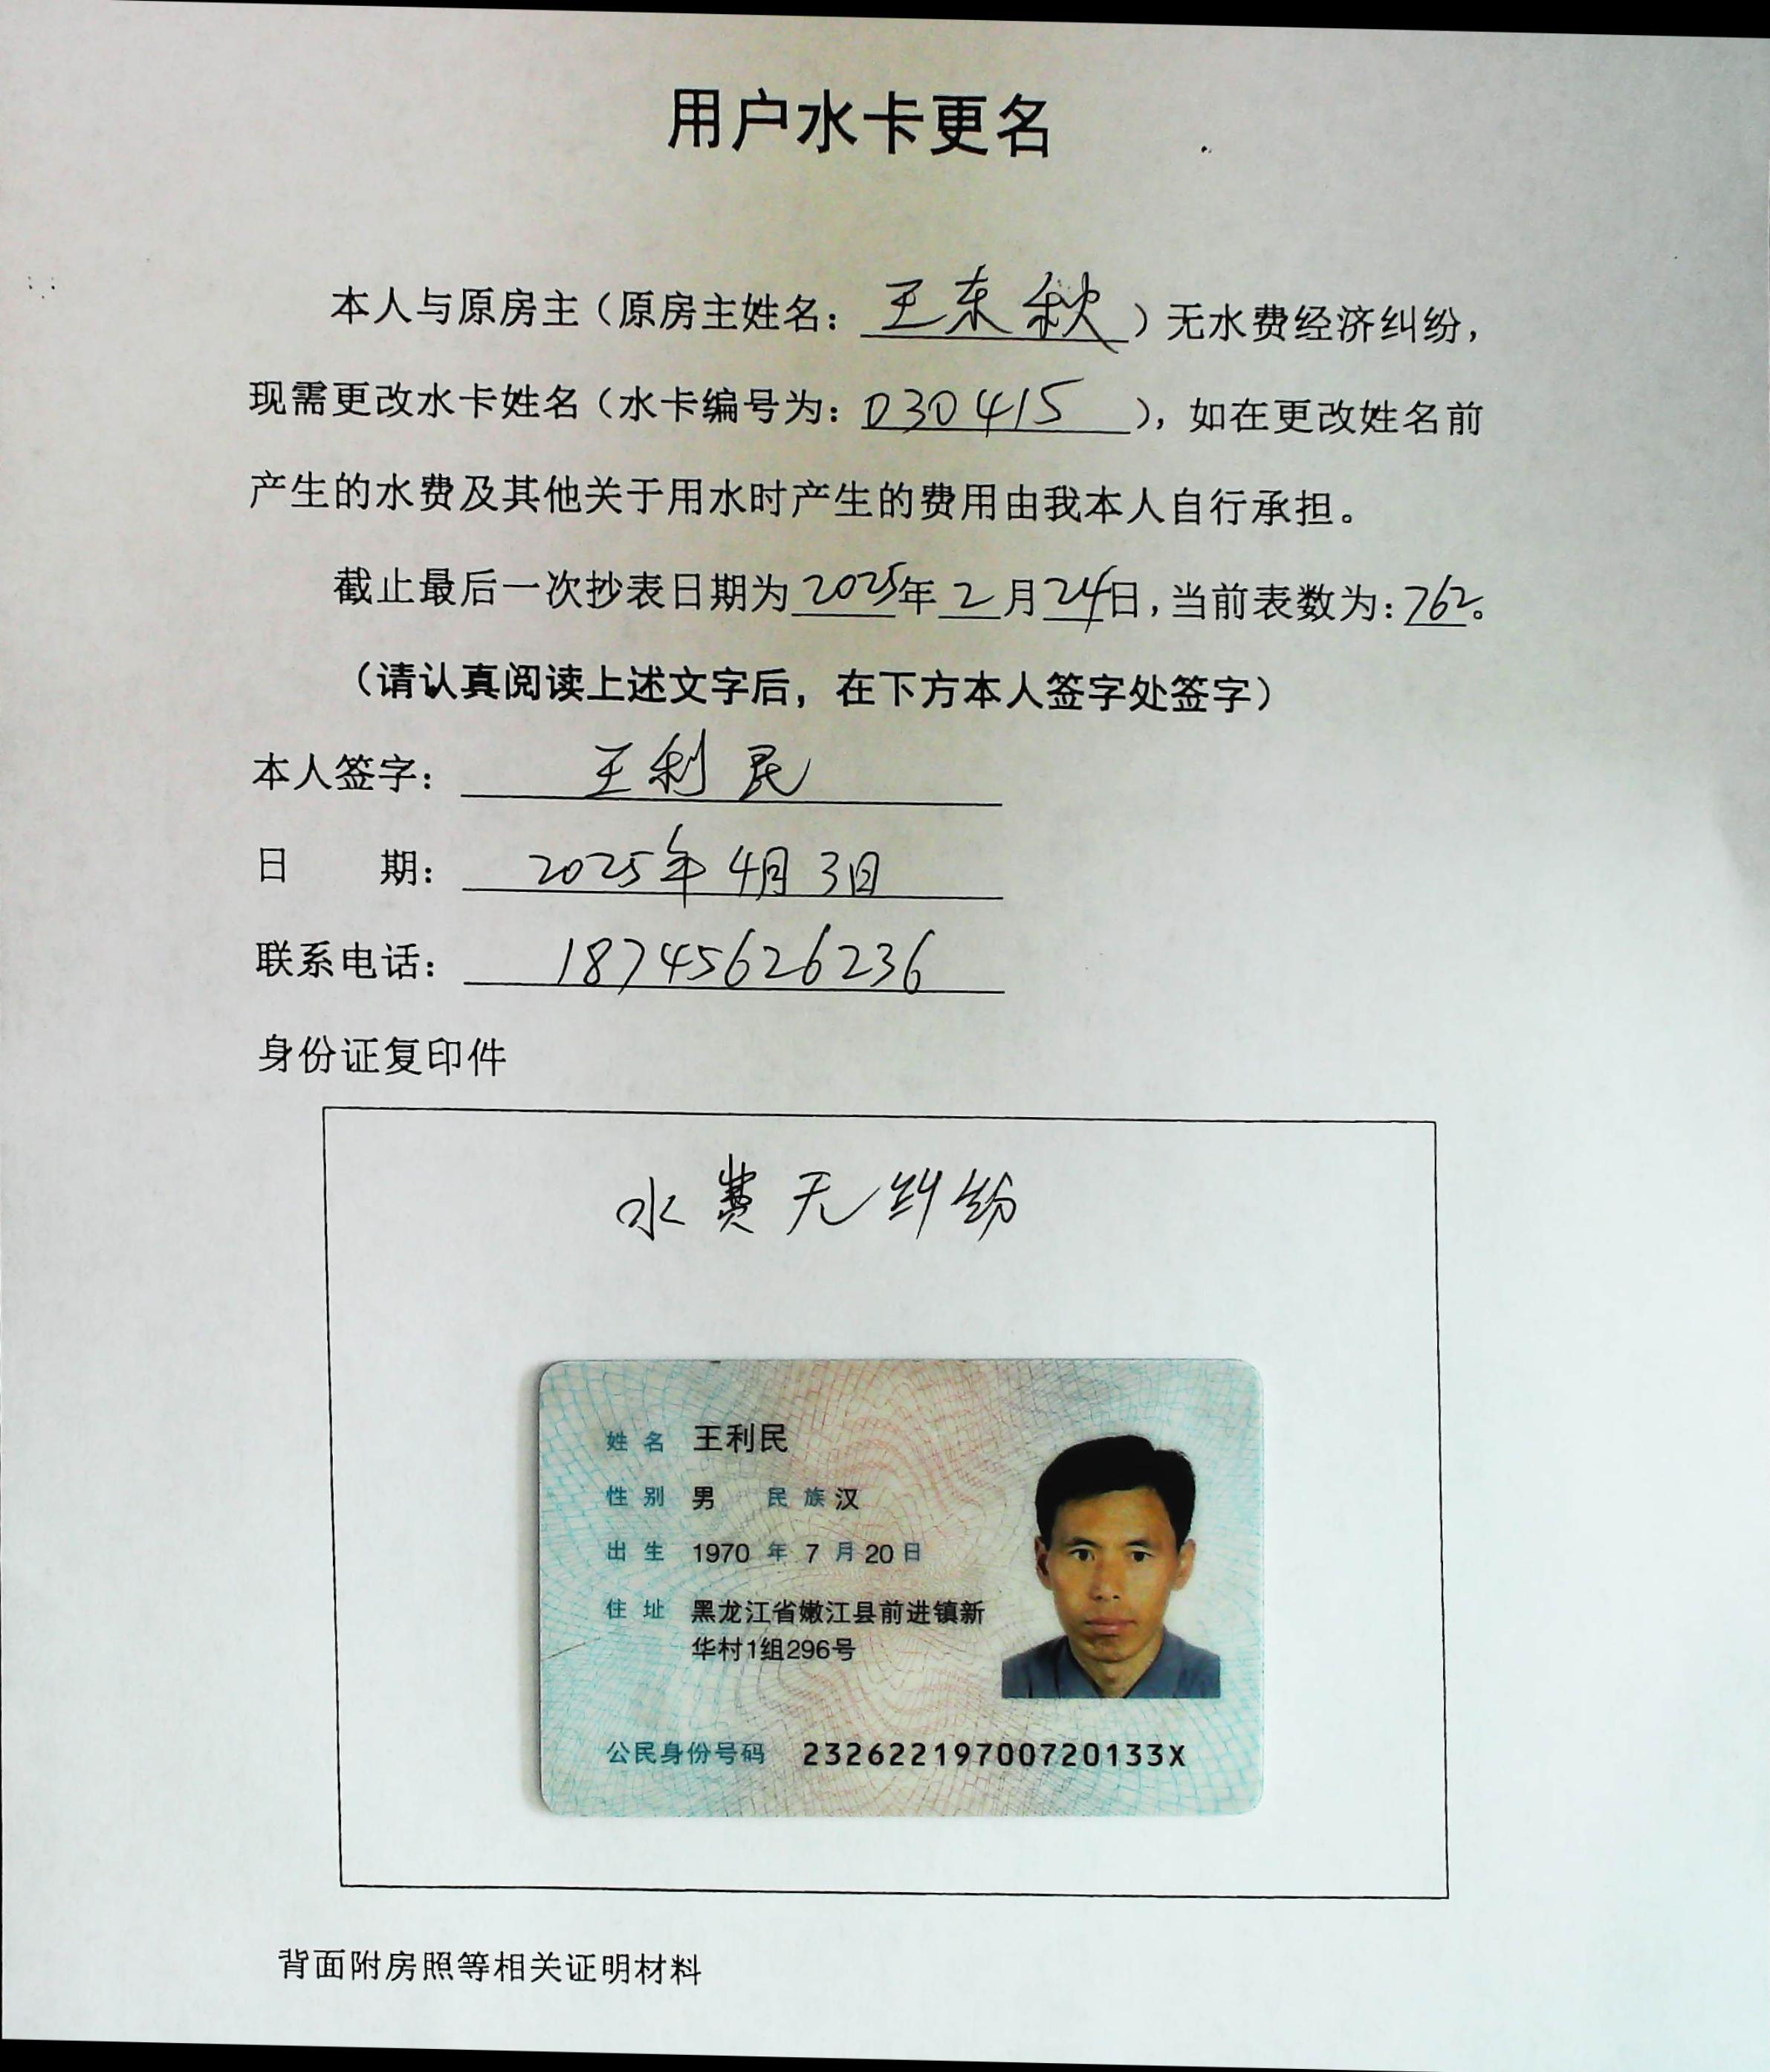 用户水卡更名
本人与原房主（原房主姓名：王东秋）无水费经济纠纷，
现需更改水卡姓名（水卡编号为：030415），如在更改姓名前
产生的水费及其他关于用水时产生的费用由我本人自行承担。
截止最后一次抄表日期为2025年2月24日，当前表数为：762。
（请认真阅读上述文字后，在下方本人签字处签字）
本人签字：王利民
日期：2025年4月3日
联系电话：18745626236
身份证复印件
水费无纠纷
姓名 王利民
性别 男 民族 汉
出生 1970年7月20日
住址 黑龙江省嫩江县前进镇新
华村1组296号
公民身份号码 23262219700720133X
背面附房照等相关证明材料